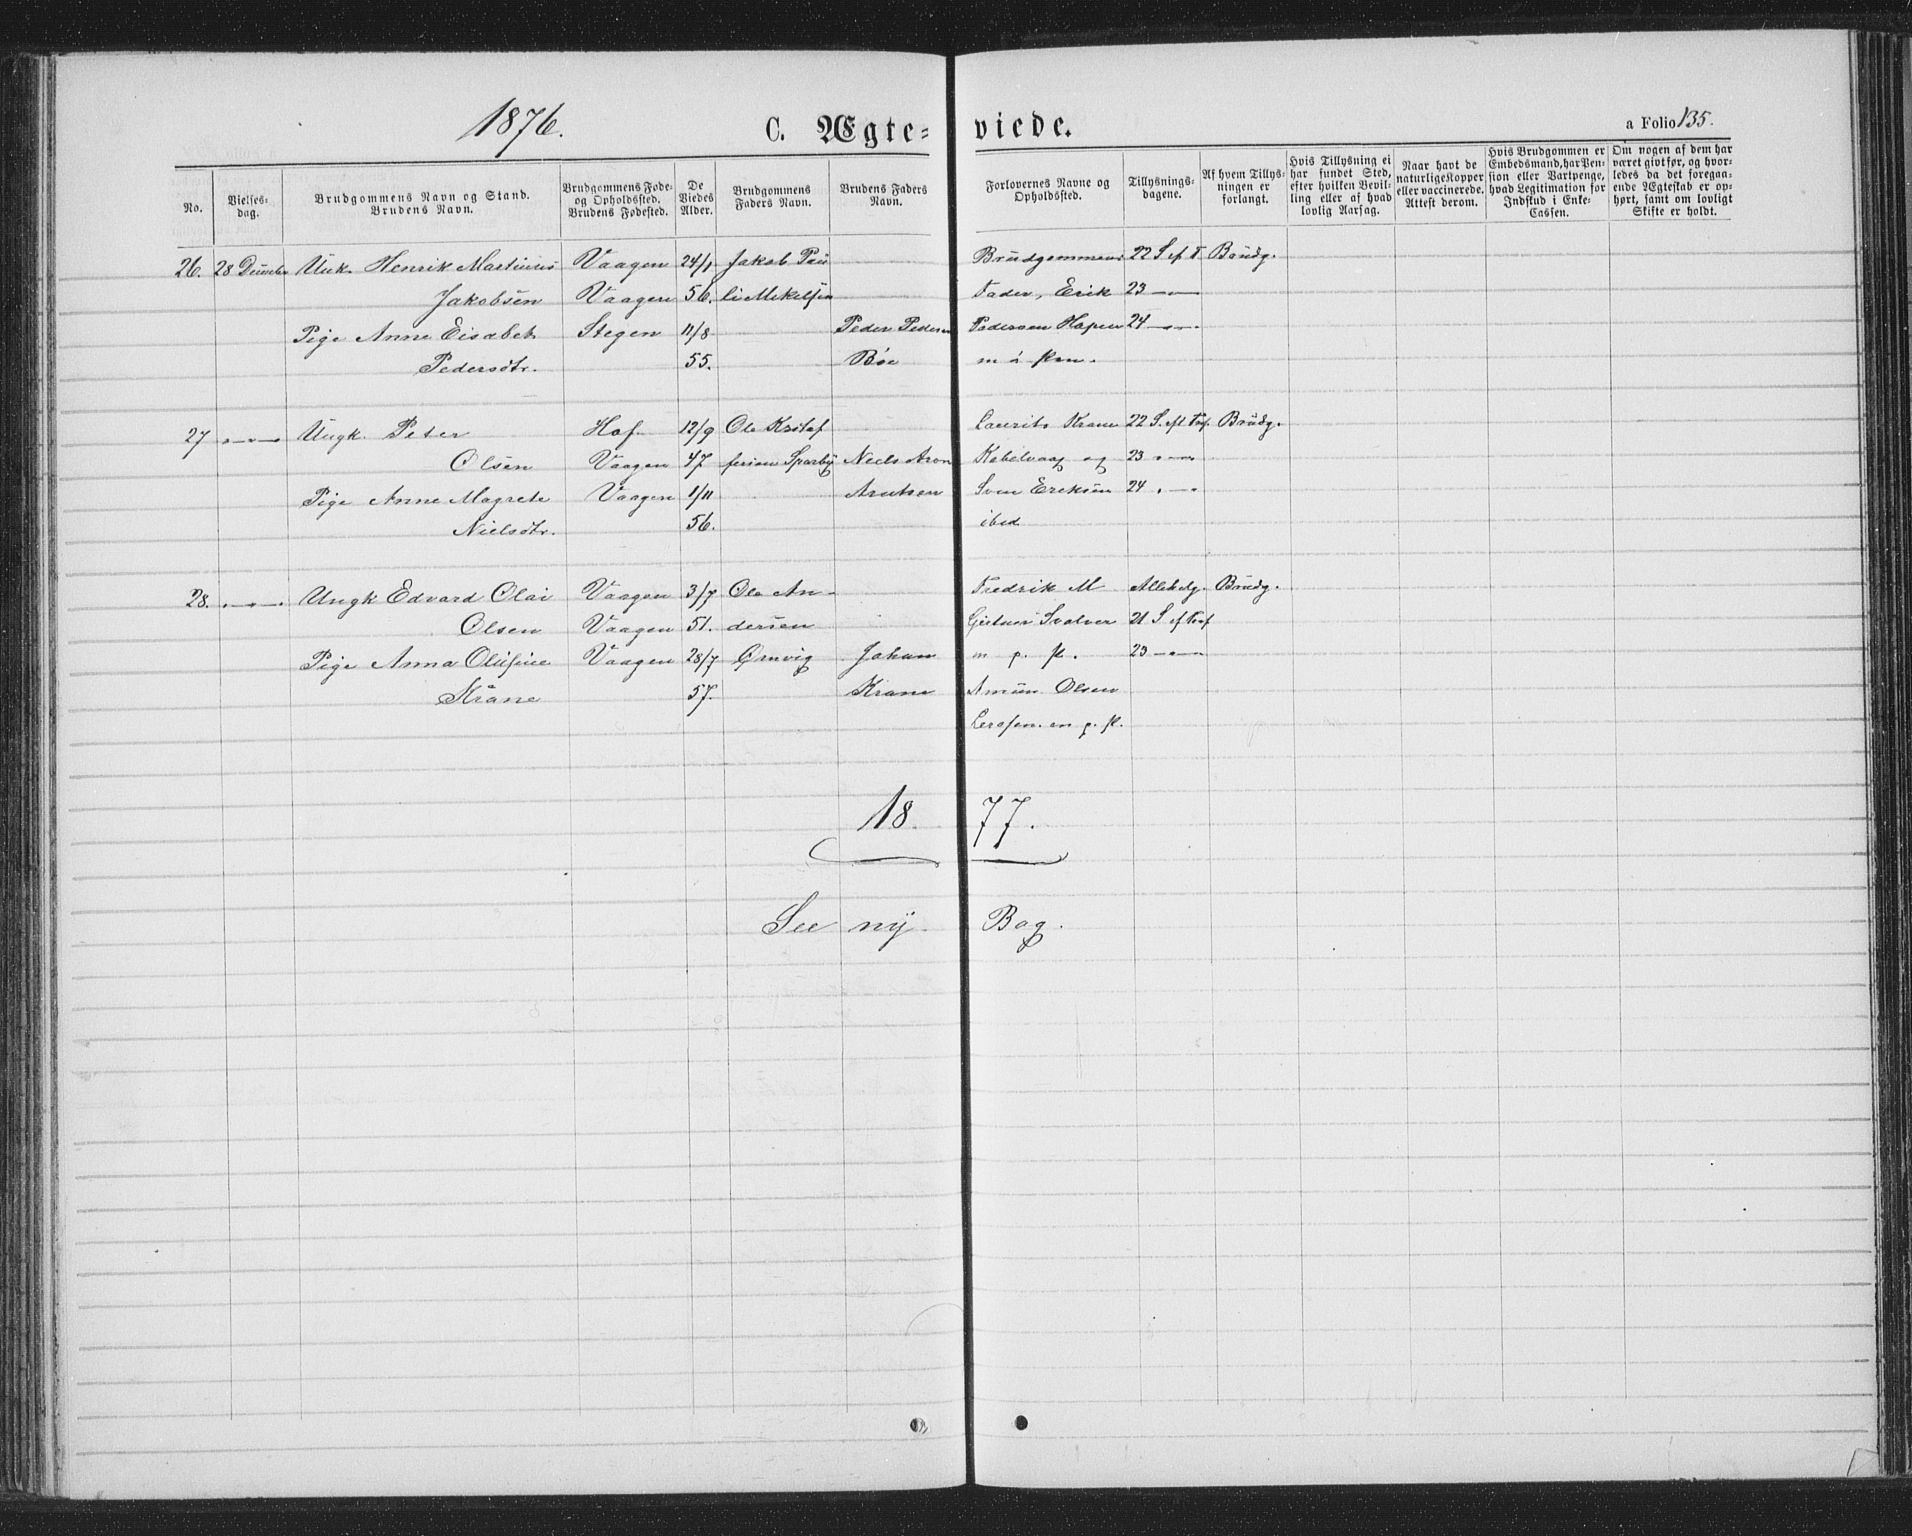 1876.
C. Ægte=
viede.
a Folio 135.
No.
Vielses-
dag.
Brudgommens Navn og Stand.
Brudens Navn.
Brudgommens Føde-
og Opholdssted.
Brudens Fødested.
De
Viedes
Alder.
Brudgommens
Faders Navn.
Brudens Faders
Navn.
Forlovernes Navne og
Opholdssted.
Tillysnings-
dagene.
Af hvem Tillys-
ningen er
forlangt.
Hvis Tillysning ei
har fundet Sted,
efter hvilken Bevil-
ling eller af hvad
lovlig Aarsag.
Naar havt de
naturlige Kopper
eller vaccinerede.
Attest derom.
Hvis Brudgommen er
Embedsmand, har Pen-
sion eller Vartpenge,
hvad Legitimation for
Indskud i Enke-
Cassen.
Om nogen af dem har
været gift før, og hvor-
ledes da det foregaa-
ende Ægteskab er op-
hørt, samt om lovligt
Skifte er holdt.
26. 28 December Unk. Henrik Martinus Vaagen 24/1 Jakob Pau Brudgommens 22 S ef T Brudg.
Jakobsen Vaagen 56. li Mikelsen Fader, Erik 23 —„—
Pige Anne Elsabet Stegen 11/8 Peder Peders Pedersen Hopen 24 —„—
Pedersdtr. 55. Bøe
27 „—„— Ungk. Peter Hof 12/9 Ole Kristof Laurits Krane 22 S. eft Tref. Brudg.
Olsen Vaagen 47 fersen Sparby Niels Aron Kabelvaag og 23 „—„
Pige Anne Magrete Vaagen 1/11 Arntsen Sven Eriksen 24 „—„
Nielsdtr. 56. ibid
28. „—„— Ungk Edvard Olai Vaagen 3/7 Ole An- Fredrik M Allehelg. Brudg.
Olsen Vaagen 51. dersen Svolver 21 S ef Tref
Pige Anna Olufine Vaagen 28/7 Ørnvig Johan m p. p. 23 —„—
Krane 57. Krane Olsen
m p. p.
18 77.
See ny Bog.